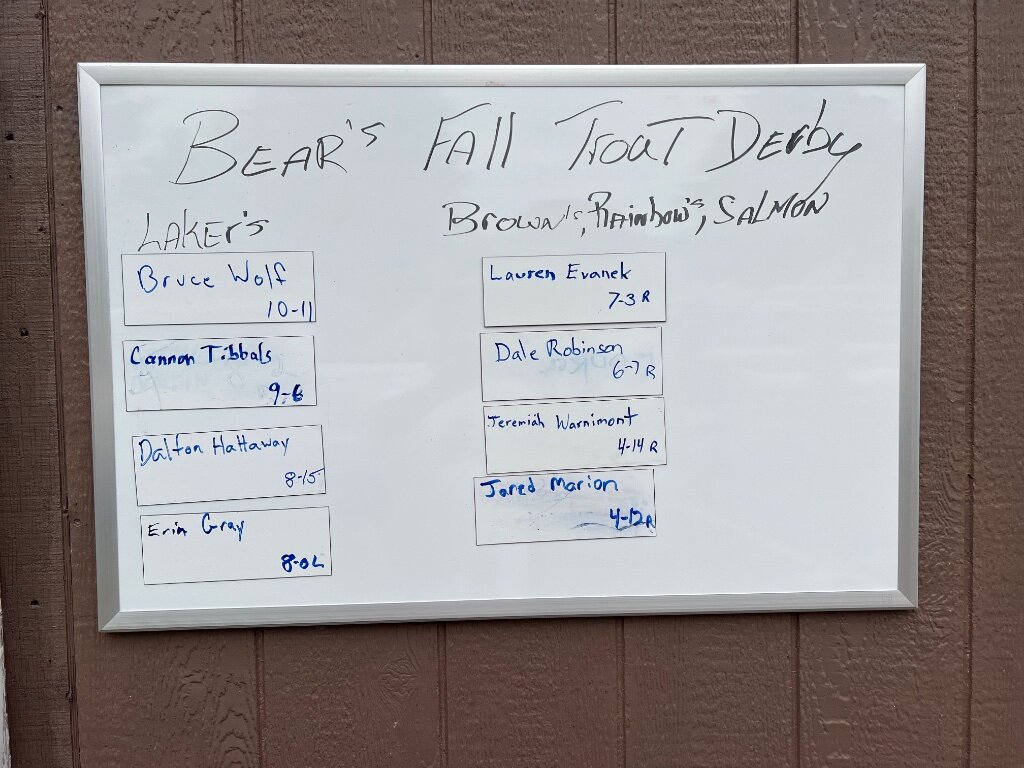 BEAR's FAll TrouT Derby
LAKEr's
Bruce Wolf
10-11
Cannon Tibbals
9-6
Dalton Hattaway
8-15
Erin Gray
8-0 L
Brown's, Rainbow's, SALMON
Lauren Evanek
7-3 R
Dale Robinson
6-7 R
Jeremiah Warnimont
4-14 R
Jared Marion
4-12 R